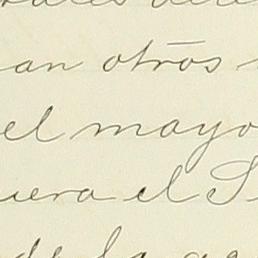 an otros
el mayo
uera el S
de la